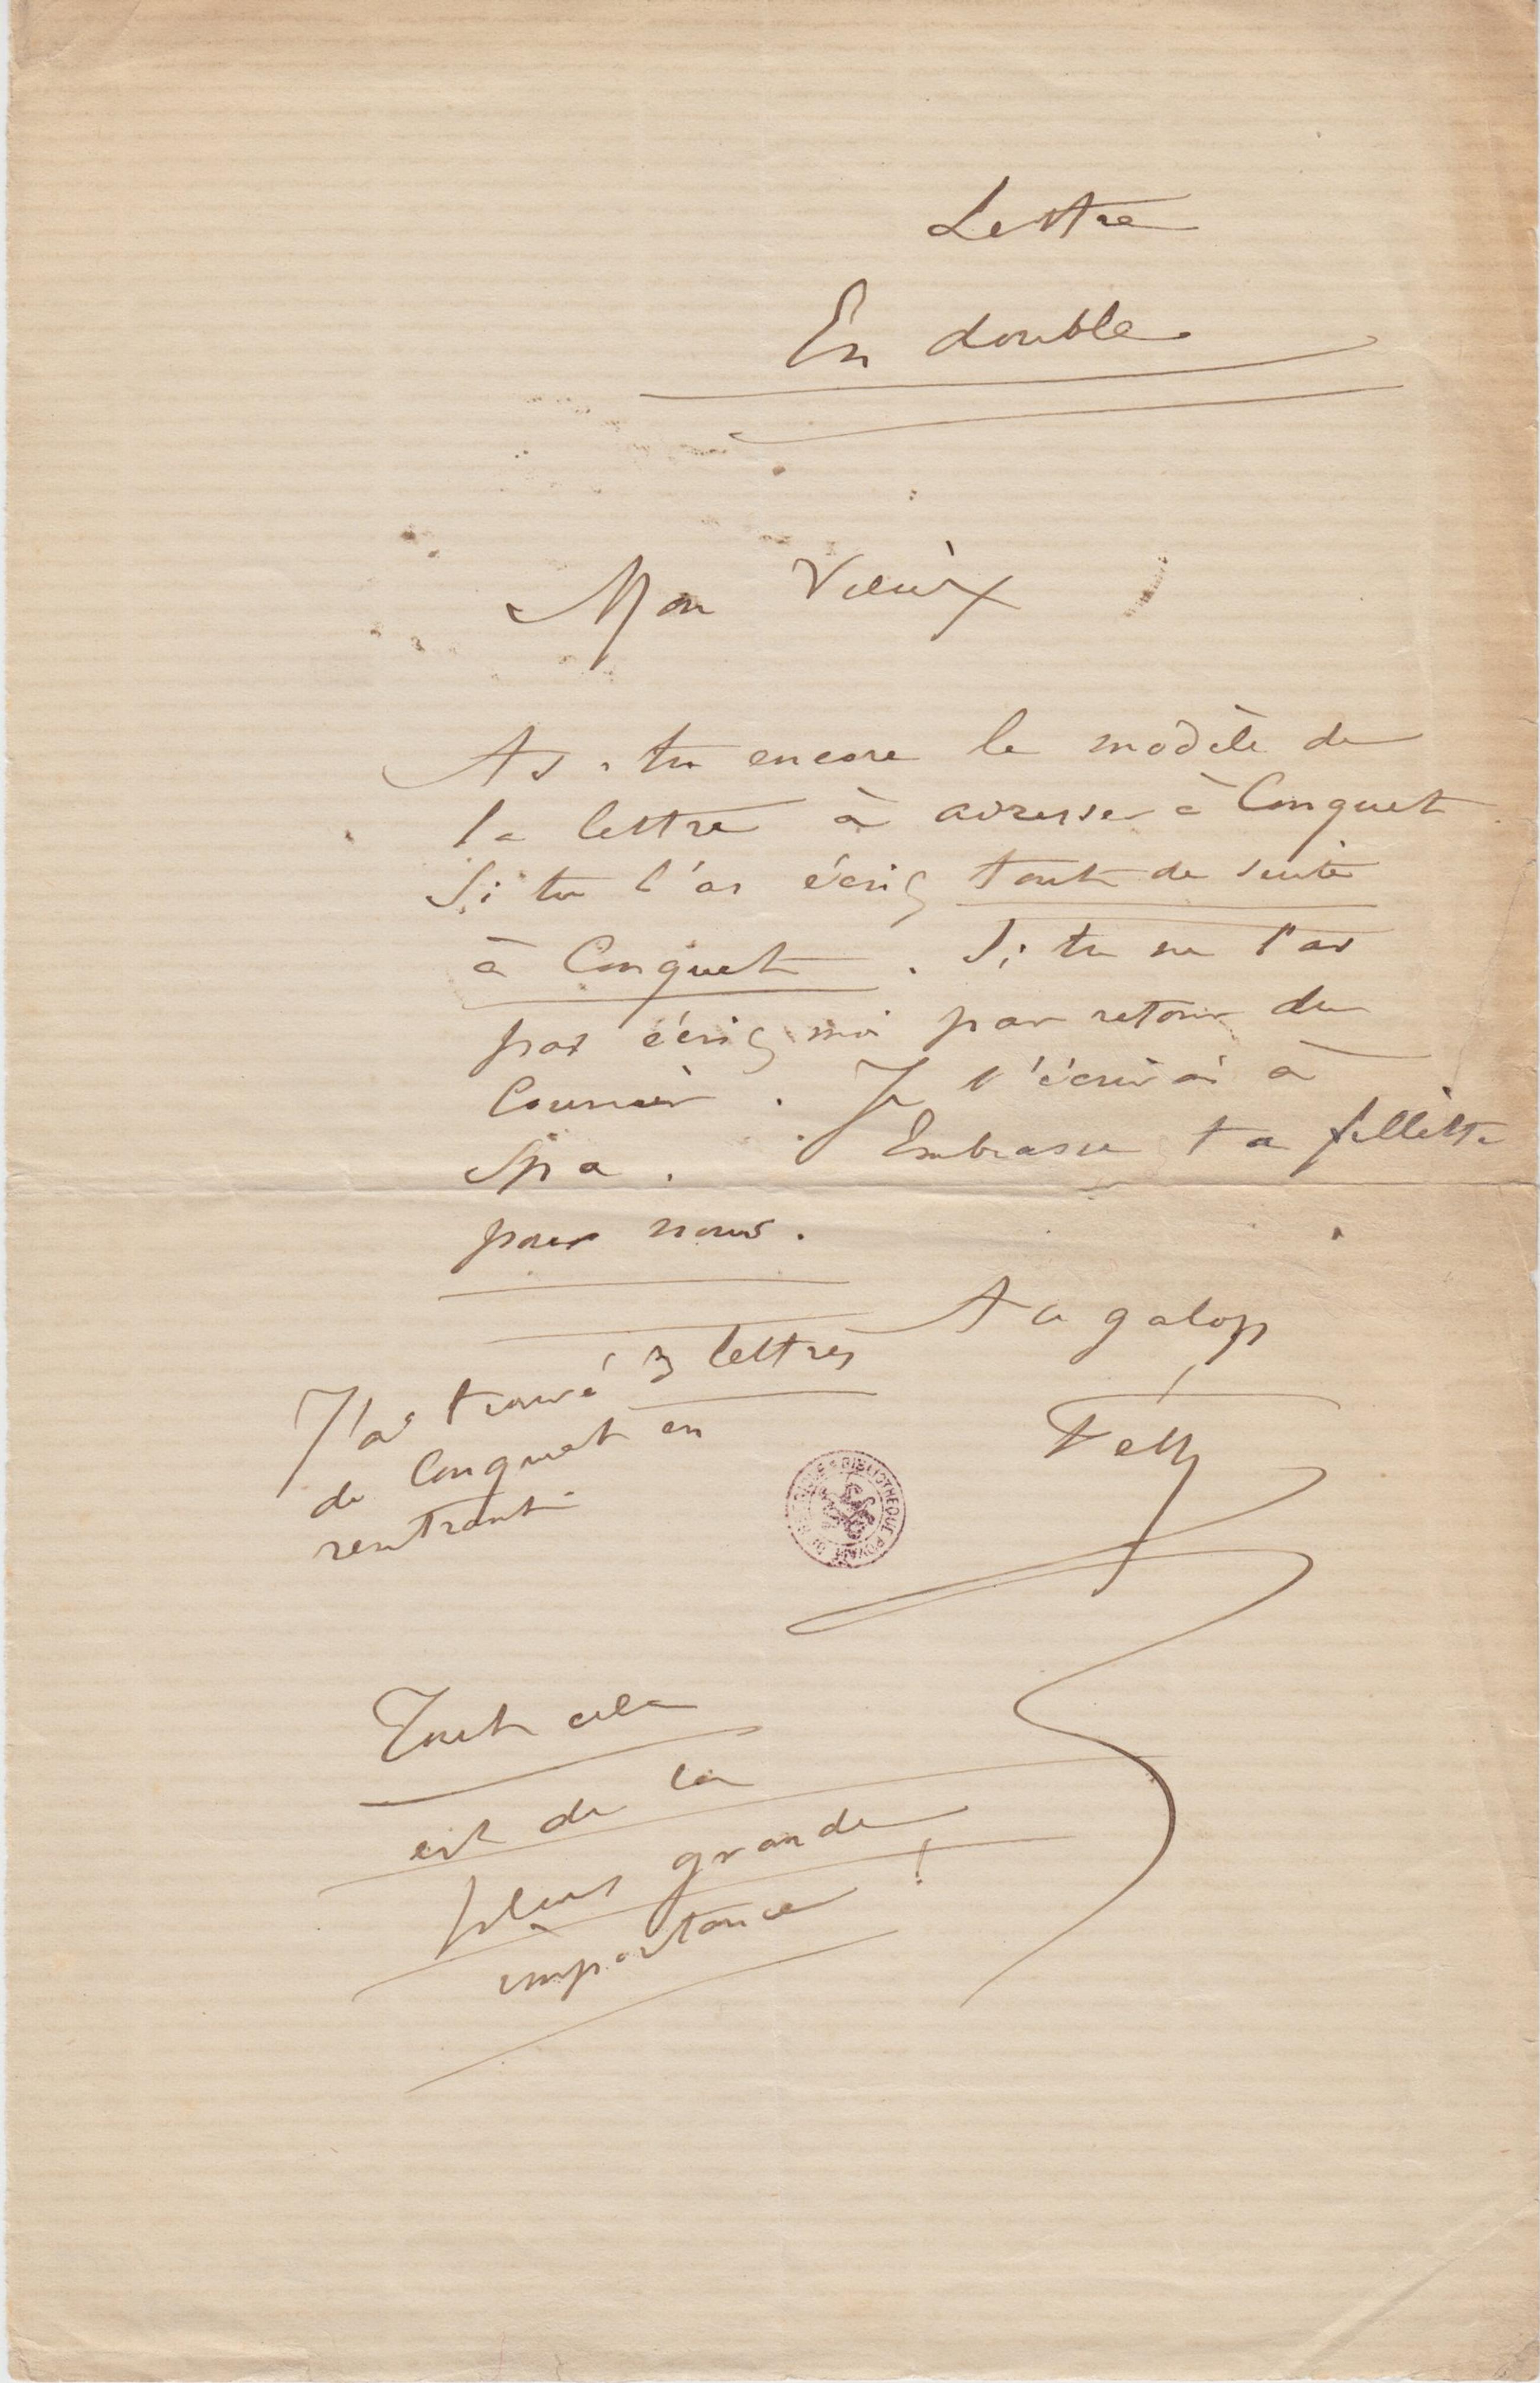 Lettre
En double
Mon Vieux
As-tu encore le modèle de
la lettre à adresser à Conquet
Si tu l'as écris tout de suite
à Conquet. Si tu ne l'as
pas écris moi par retour du
Courrier. Je t'écrirai à
Spa. Embrasse ta fillette
pour nous.
A ce galop
J'ai trouvé 3 lettres
de Conquet en
rentrant
Fély
BIBLIOTHEQUE ROYALE
Tout cela
est de la
plus grande
importance !